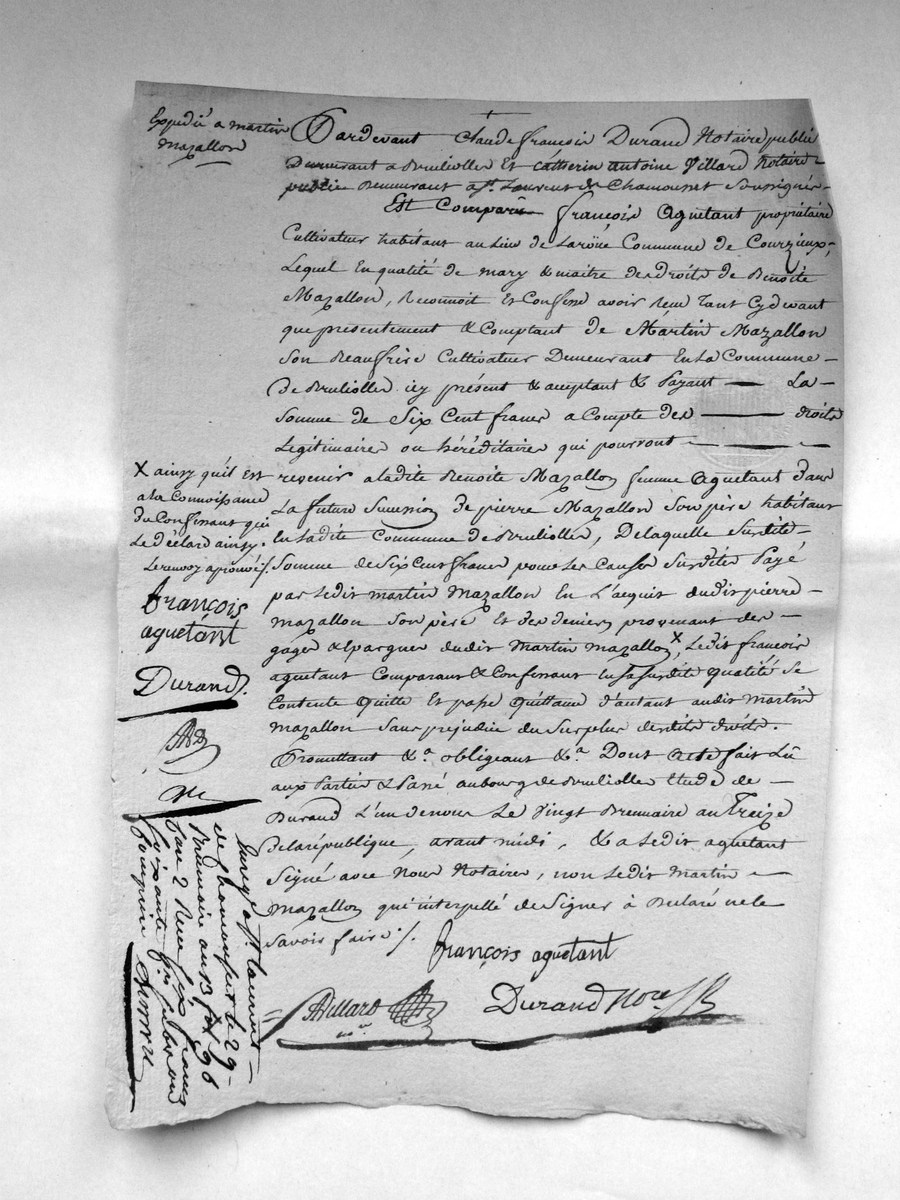 Expedié a martin
mazallon
Pardevant Claude françois Durand Notaire public
Demeurant a Brullioller Et catherin antoine Villard Notaire
public Demeurant a St. Laurent de Chamousset Soussignés
Est Comparu françois Aguetant propriétaire
Cultivateur habitant au Lieu de Laroüe Commune de Courzieux,
Lequel En qualité de mary & maitre des droits de Benoite
Mazallon, Reconnoit Et Confesse avoir Recu Tant Cydevant
que présentement & Comptant de Martin Mazallon
Son Beaufrère Cultivateur Demeurant En La Commune
de Brullioller icy présent & acceptant & Payant La
Somme de Six Cent francs a Compte des droits
Legitimaire ou héréditaire qui pourront
revenir a ladite Benoite Mazallon femme Aguetant dans
La future Succession de pierre Mazallon Son père habitant
En Ladite Commune de Brullioller, De laquelle Susdite
Somme de Six Cent francs pour les Causes Susdites Payé
par ledit martin mazallon En L'acquit dudit pierre
mazallon Son père Et des deniers provenant des
gages & Epargnes dudit Martin mazallon X, Ledit françois
aguetant Comparant & Confessant En Sa Susdite qualité Se
Contente Quitte Et passe Quittance d'autant audit martin
mazallon Sans prejudice du Surplus desdits droits.
Promettant &a. obligeant &a. Dont Acte fait Lû
aux Parties & Passé au bourg de Brullioller Etude de
Durand L'un de nous Le Vingt Brumaire an Treize
de la république, avant midi, & a Ledit aguetant
Signé avec Nous Notaires, non Ledit Martin
mazallon qui interpellé de Signer à Declaré ne le
Savoir faire ./.
françois aguetant
Villard
nore
Durand Nore
X ainsy qu'il Est
a la Connoissance
du Confessant qui
Le déclare ainsy.
Le renvoy aprouvé ./.
françois
aguetant
Durand
Enregé a St. Laurent
de Chamousset le 29
Brumaire an 13 fol 96
Case 2 Recu Six francs
soixante